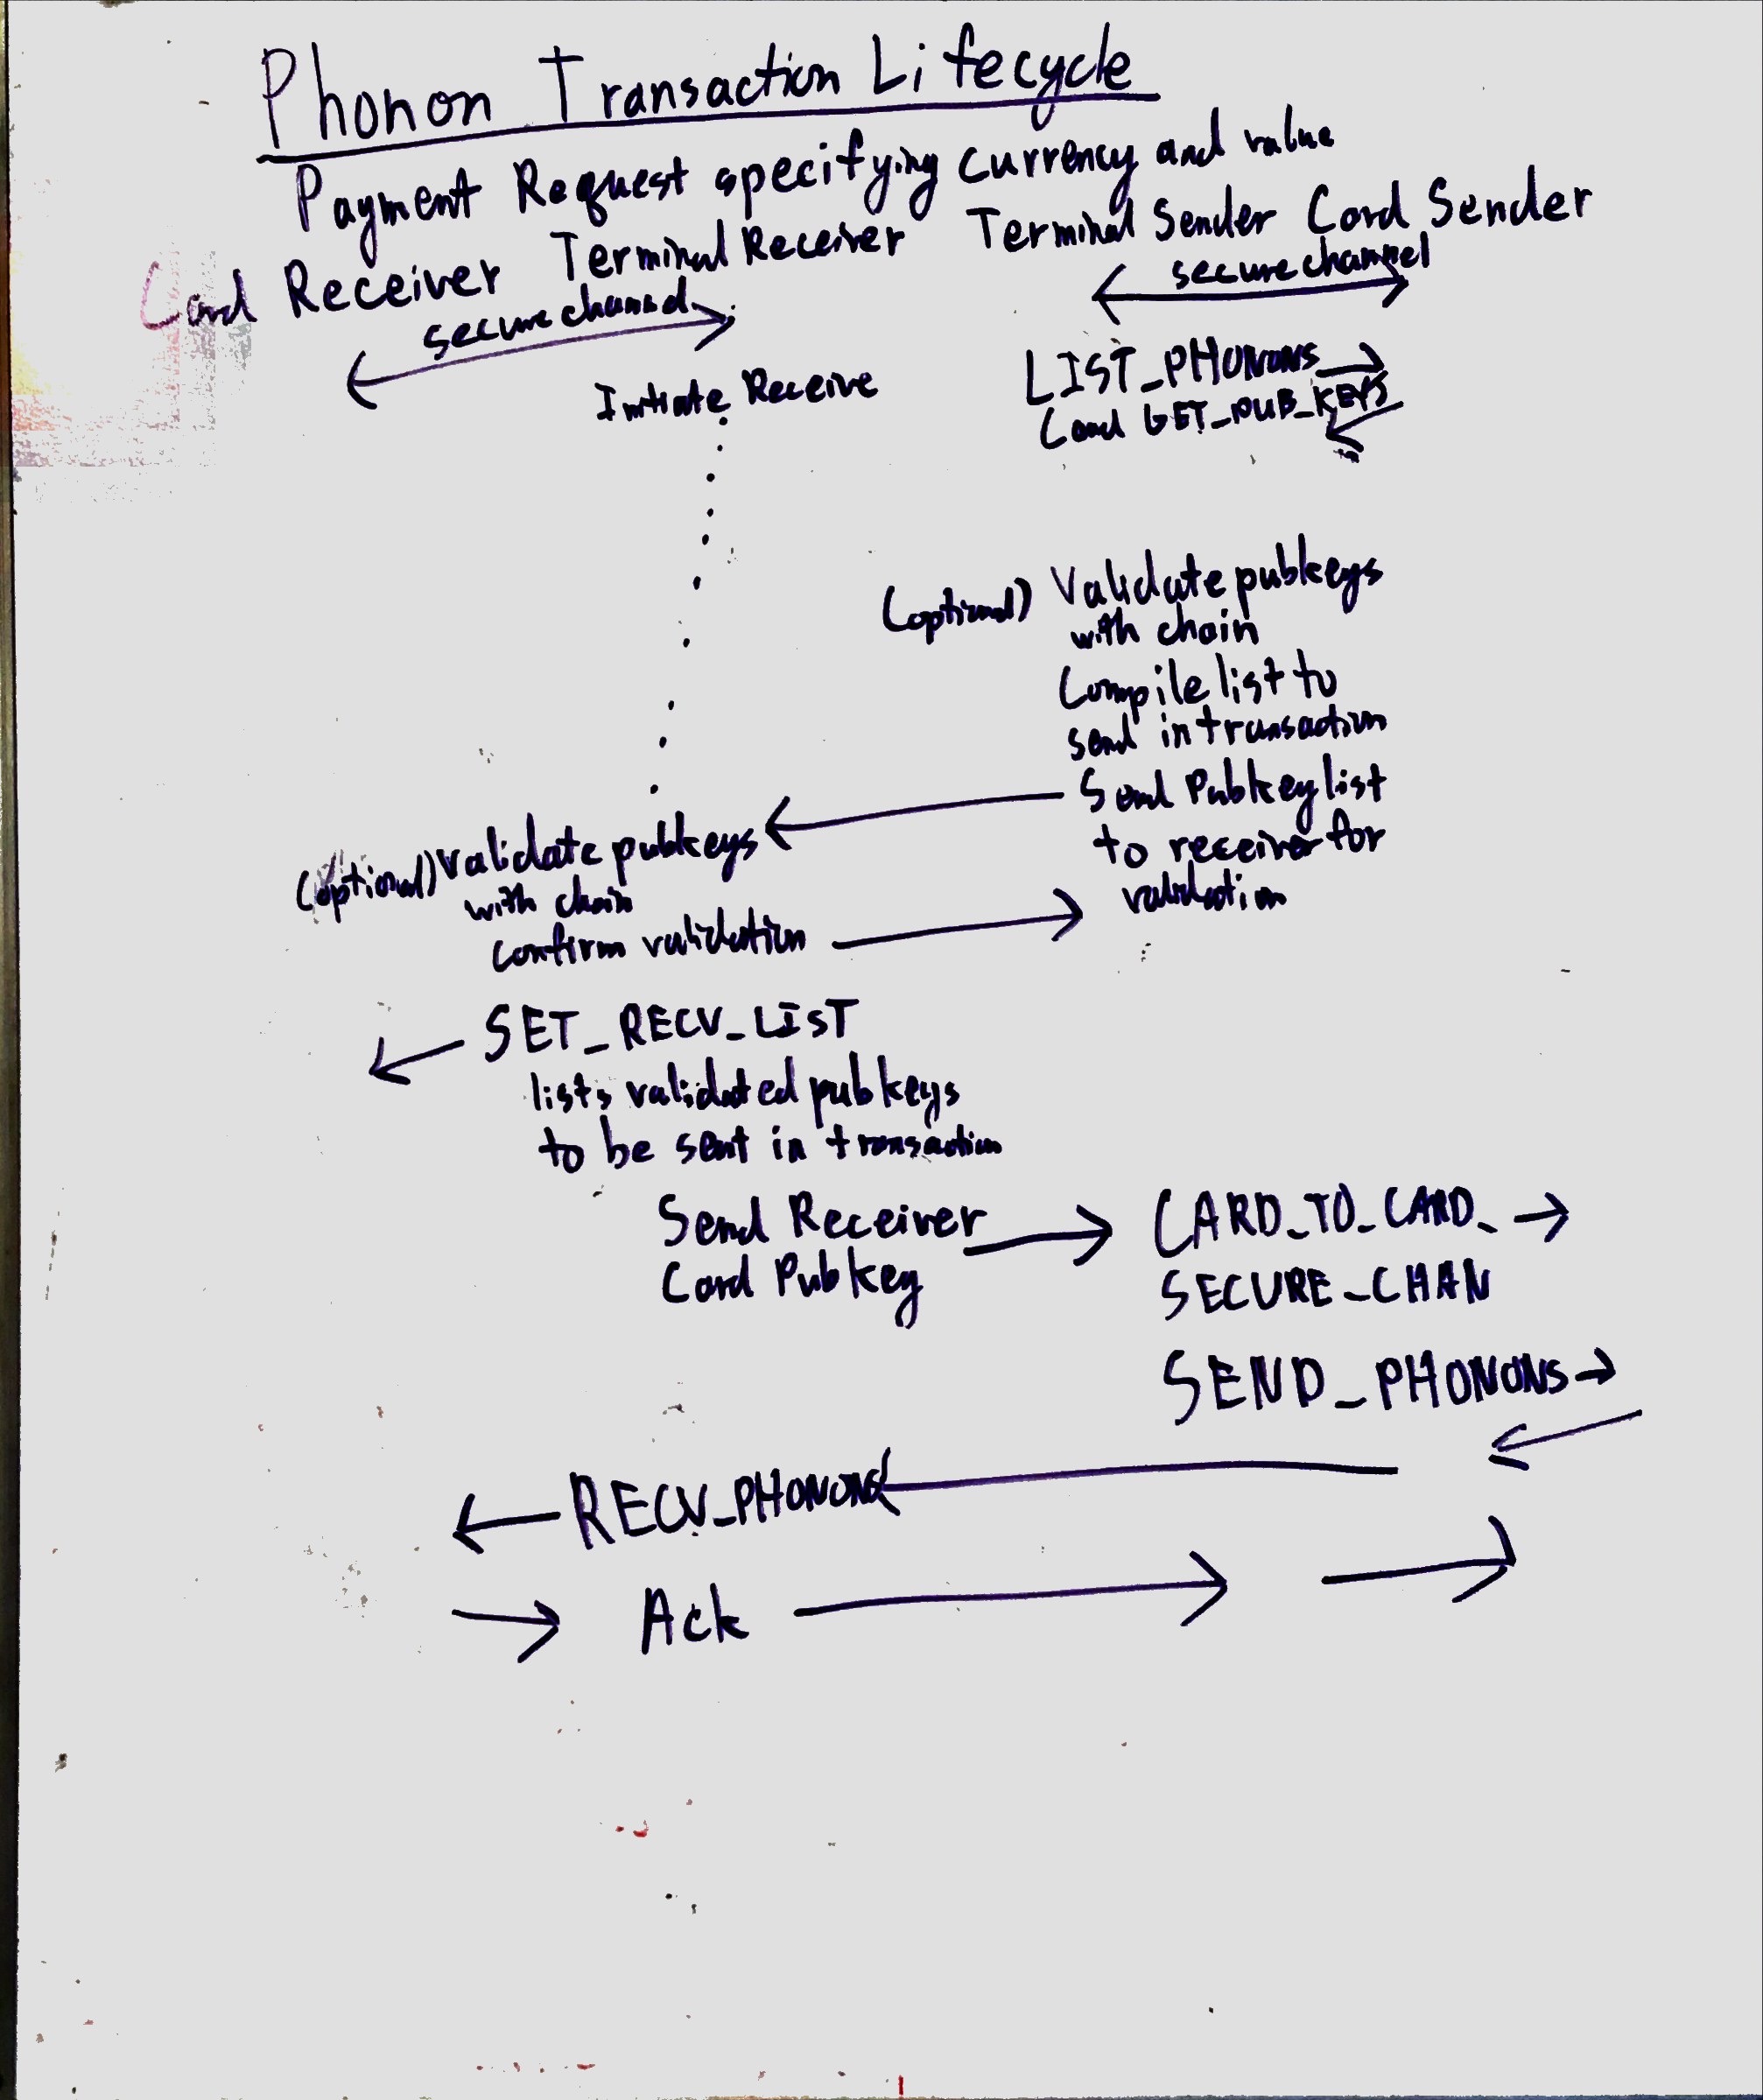 Phonon Transaction Lifecycle
Payment Request specifying currency and value
Card Receiver Terminal Receiver Terminal Sender Card Sender
secure channel
secure channel
Initiate Receive
LIST_PHONONS
(and GET_PUB_KEYS
(optional) Validate pubkeys
with chain
Compile list to
send in transaction
Send Pubkey list
to receiver for
validation
(optional) Validate pubkeys
with chain
confirm validation
SET_RECV_LIST
lists validated pubkeys
to be sent in transaction
Send Receiver
Card Pubkey
CARD_TO_CARD_
SECURE_CHAN
SEND_PHONONS
RECV_PHONONS
Ack